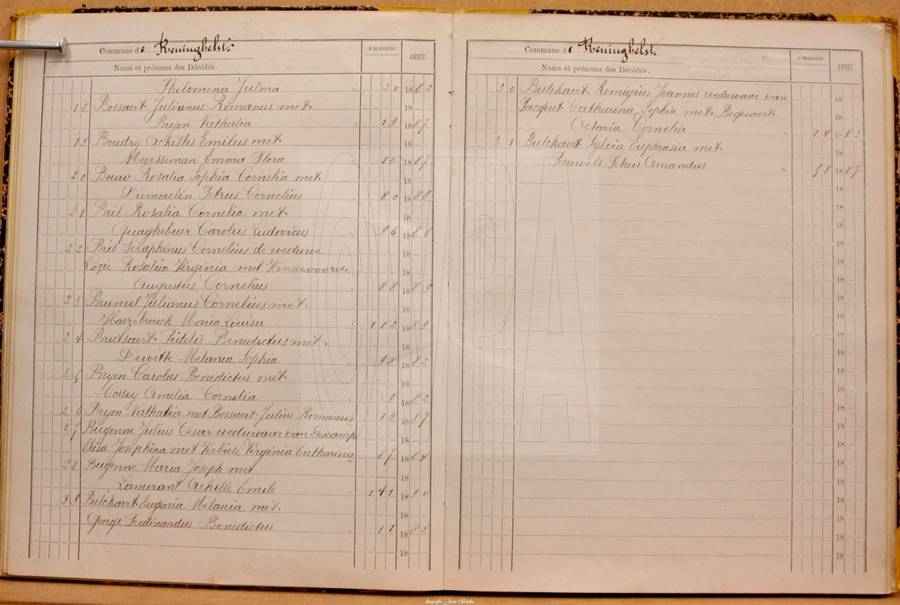 Commune de Reninghelst.
Noms et prénoms des Décédés.
ANNÉE
Philomena Julma 30 1882
18 Bossaert Julianus Romanus met
Pryon Nathalia 19 1887
19 Boudry Achilles Emilius met
Meersseman Emma Flora 10 1887
20 Bouw Rosalia Sophia Cornelia met
Dumoulin Petrus Cornelius 80 1888
21 Bril Rosalia Cornelia met
Quaghebeur Carolus Ludovicus 86 1886
22 Bril Seraphinus Cornelius de weduwe
Rosalia Virginia met
Augustus Cornelius 88 1883
23 Bruneel Julianus Cornelius met
Haezebrouck Maria Louisa 112 1889
24 Brutsaert Fidelis Benedictus met
Dewitte Melania Sophia 98 1882
25 Pryon Carolus Benedictus met
Cossey Amelia Cornelia 9 1882
26 Pryon Nathalia met Bossaert Julius Romanus 19 1887
27 Bugenne Julius Cesar weduwaar van Descamps
Elisa Josephina met Verbiese Virginia Catharina 67 1884
28 Bugenne Maria Joseph met
Lamerant Achille Emile 141 1880
29 Bulckaert Eugenia Melania met
George Ferdinandus Benedictus 11 1882
Commune de Reninghelst.
Noms et prénoms des Décédés.
ANNÉE
30 Bulckaert Remigius Joannus weduwaar van
Jacquet Catharina Sophia met Bequaert
Octavia Cornelia 14 1883
31 Bulckaert Sylvia Euphrasia met
Amandus 58 1887